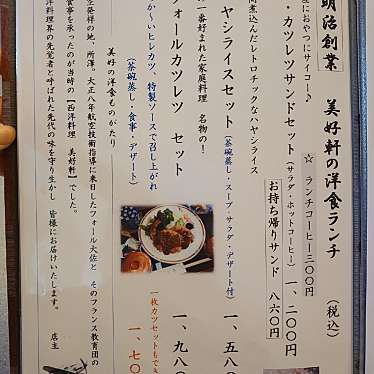 明治創業
美好軒の洋食ランチ
(税込)
☆ランチコーヒー三〇〇円
におやつにサイコー♪
・カツレツサンドセット(サラダ・ホットコーヒー) 一、二〇〇円
お持ち帰りサンド 八六〇円
煮込んだレトロチックなハヤシライス
ヤシライスセット(茶碗蒸し・スープ・サラダ・デザート付)
一、五八
一番好まれた家庭料理 名物の!
フォールカツレツ セット
一、九八
か~いヒレカツ、特製ソースで召し上がれ
(茶碗蒸し・食事・デザート)
一枚カツセットもでき
一、七〇
美好の洋食ものがたり
空発祥の地、所澤・大正八年航空技術指導に来日したフォール大佐と そのフランス教育団の
食事を承ったのが当時の【西洋料理 美好軒】でした。
洋料理界の先覚者と呼ばれた先代の味を守り生かし 皆様にお届いたします。
店主